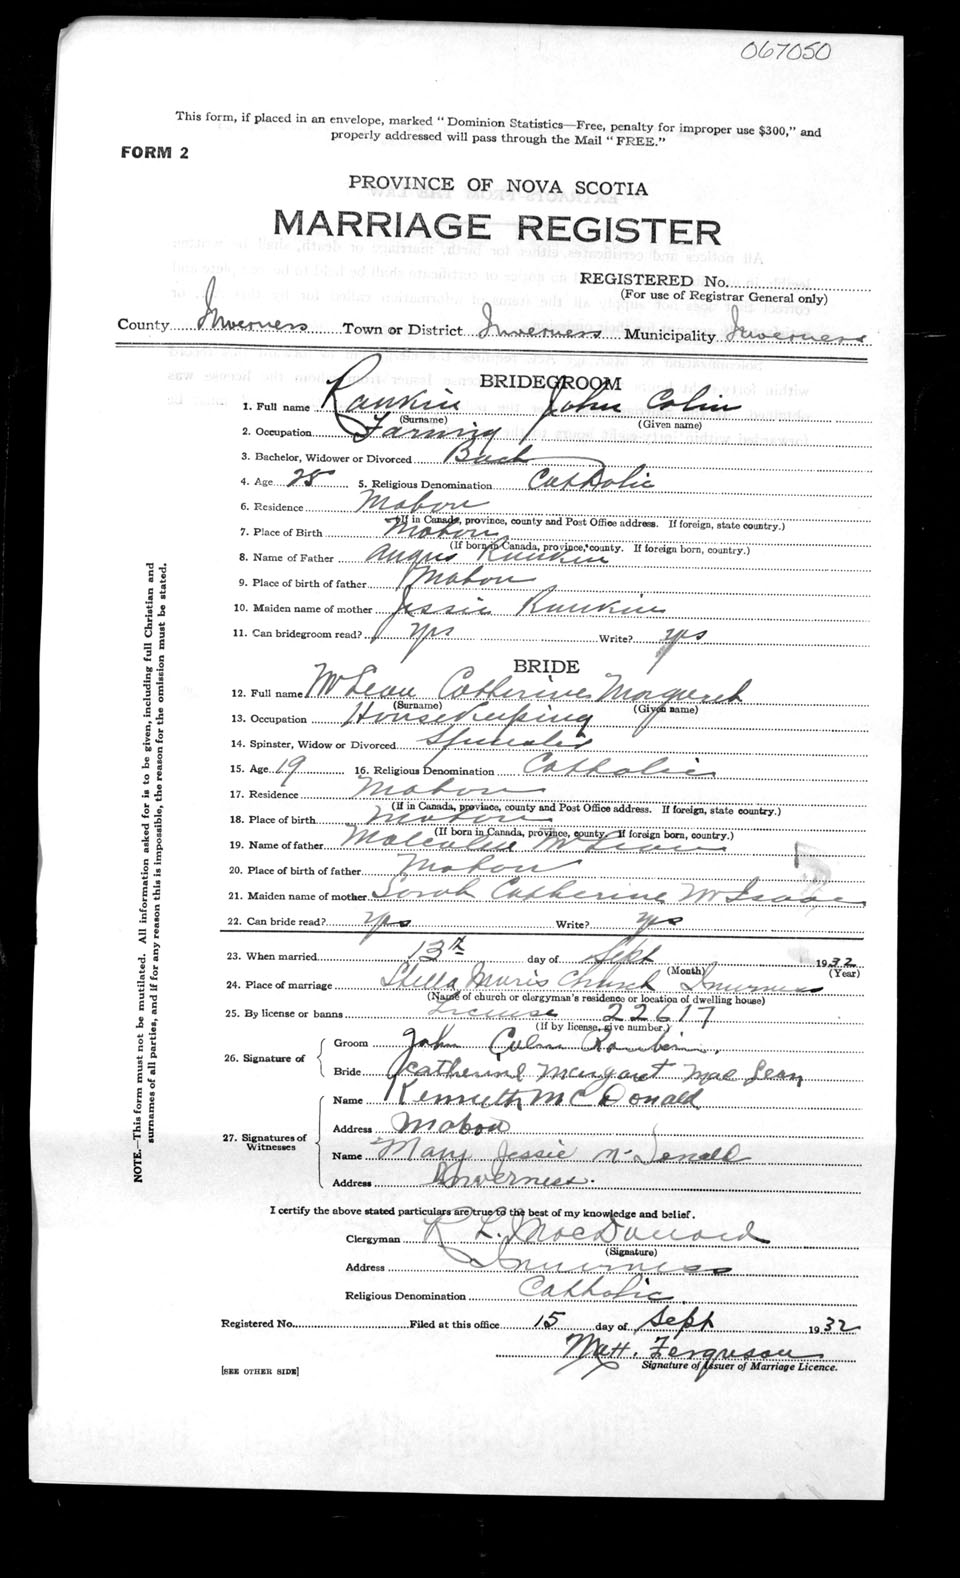 067050
This form, if placed in an envelope, marked "Dominion Statistics—Free, penalty for improper use $300," and
properly addressed will pass through the Mail "FREE."
FORM 2
PROVINCE OF NOVA SCOTIA
MARRIAGE REGISTER
REGISTERED No.
(For use of Registrar General only)
County Inverness Town or District Inverness Municipality Inverness
BRIDEGROOM
1. Full name Rankin John Colin
(Surname) (Given name)
2. Occupation Farming
3. Bachelor, Widower or Divorced Bach
4. Age 28 5. Religious Denomination Catholic
6. Residence Mabou
(If in Canada, province, county and Post Office address. If foreign, state country.)
7. Place of Birth Mabou
(If born in Canada, province, county. If foreign born, country.)
8. Name of Father Angus Rankin
9. Place of birth of father Mabou
10. Maiden name of mother Jessie Rankin
11. Can bridegroom read? yes Write? yes
BRIDE
12. Full name McLean Catherine Margaret
(Surname) (Given name)
13. Occupation Housekeeping
14. Spinster, Widow or Divorced Spinster
15. Age 19 16. Religious Denomination Catholic
17. Residence Mabou
(If in Canada, province, county and Post Office address. If foreign, state country.)
18. Place of birth Mabou
(If born in Canada, province, county. If foreign born, country.)
19. Name of father Malcolm McLean
20. Place of birth of father Mabou
21. Maiden name of mother Sarah Catherine McIsaac
22. Can bride read? yes Write? yes
23. When married 13th day of Sept 1932
(Month) (Year)
24. Place of marriage Stella Maris Church Inverness
(Name of church or clergyman's residence or location of dwelling house)
25. By license or banns License 22617
(If by license, give number.)
26. Signature of Groom John Colin Rankin
Bride Catherine Margaret MacLean
27. Signatures of Witnesses Name Kenneth McDonald
Address Mabou
Name Mary Jessie
Address Inverness.
I certify the above stated particulars are true to the best of my knowledge and belief.
Clergyman R L. MacDonald
(Signature)
Address Inverness
Religious Denomination Catholic
Registered No. Filed at this office 15 day of Sept 1932
Matt. Ferguson
Signature of Issuer of Marriage Licence.
[SEE OTHER SIDE]
NOTE.—This form must not be mutilated. All information asked for is to be given, including full Christian and
surnames of all parties, and if for any reason this is impossible, the reason for the omission must be stated.